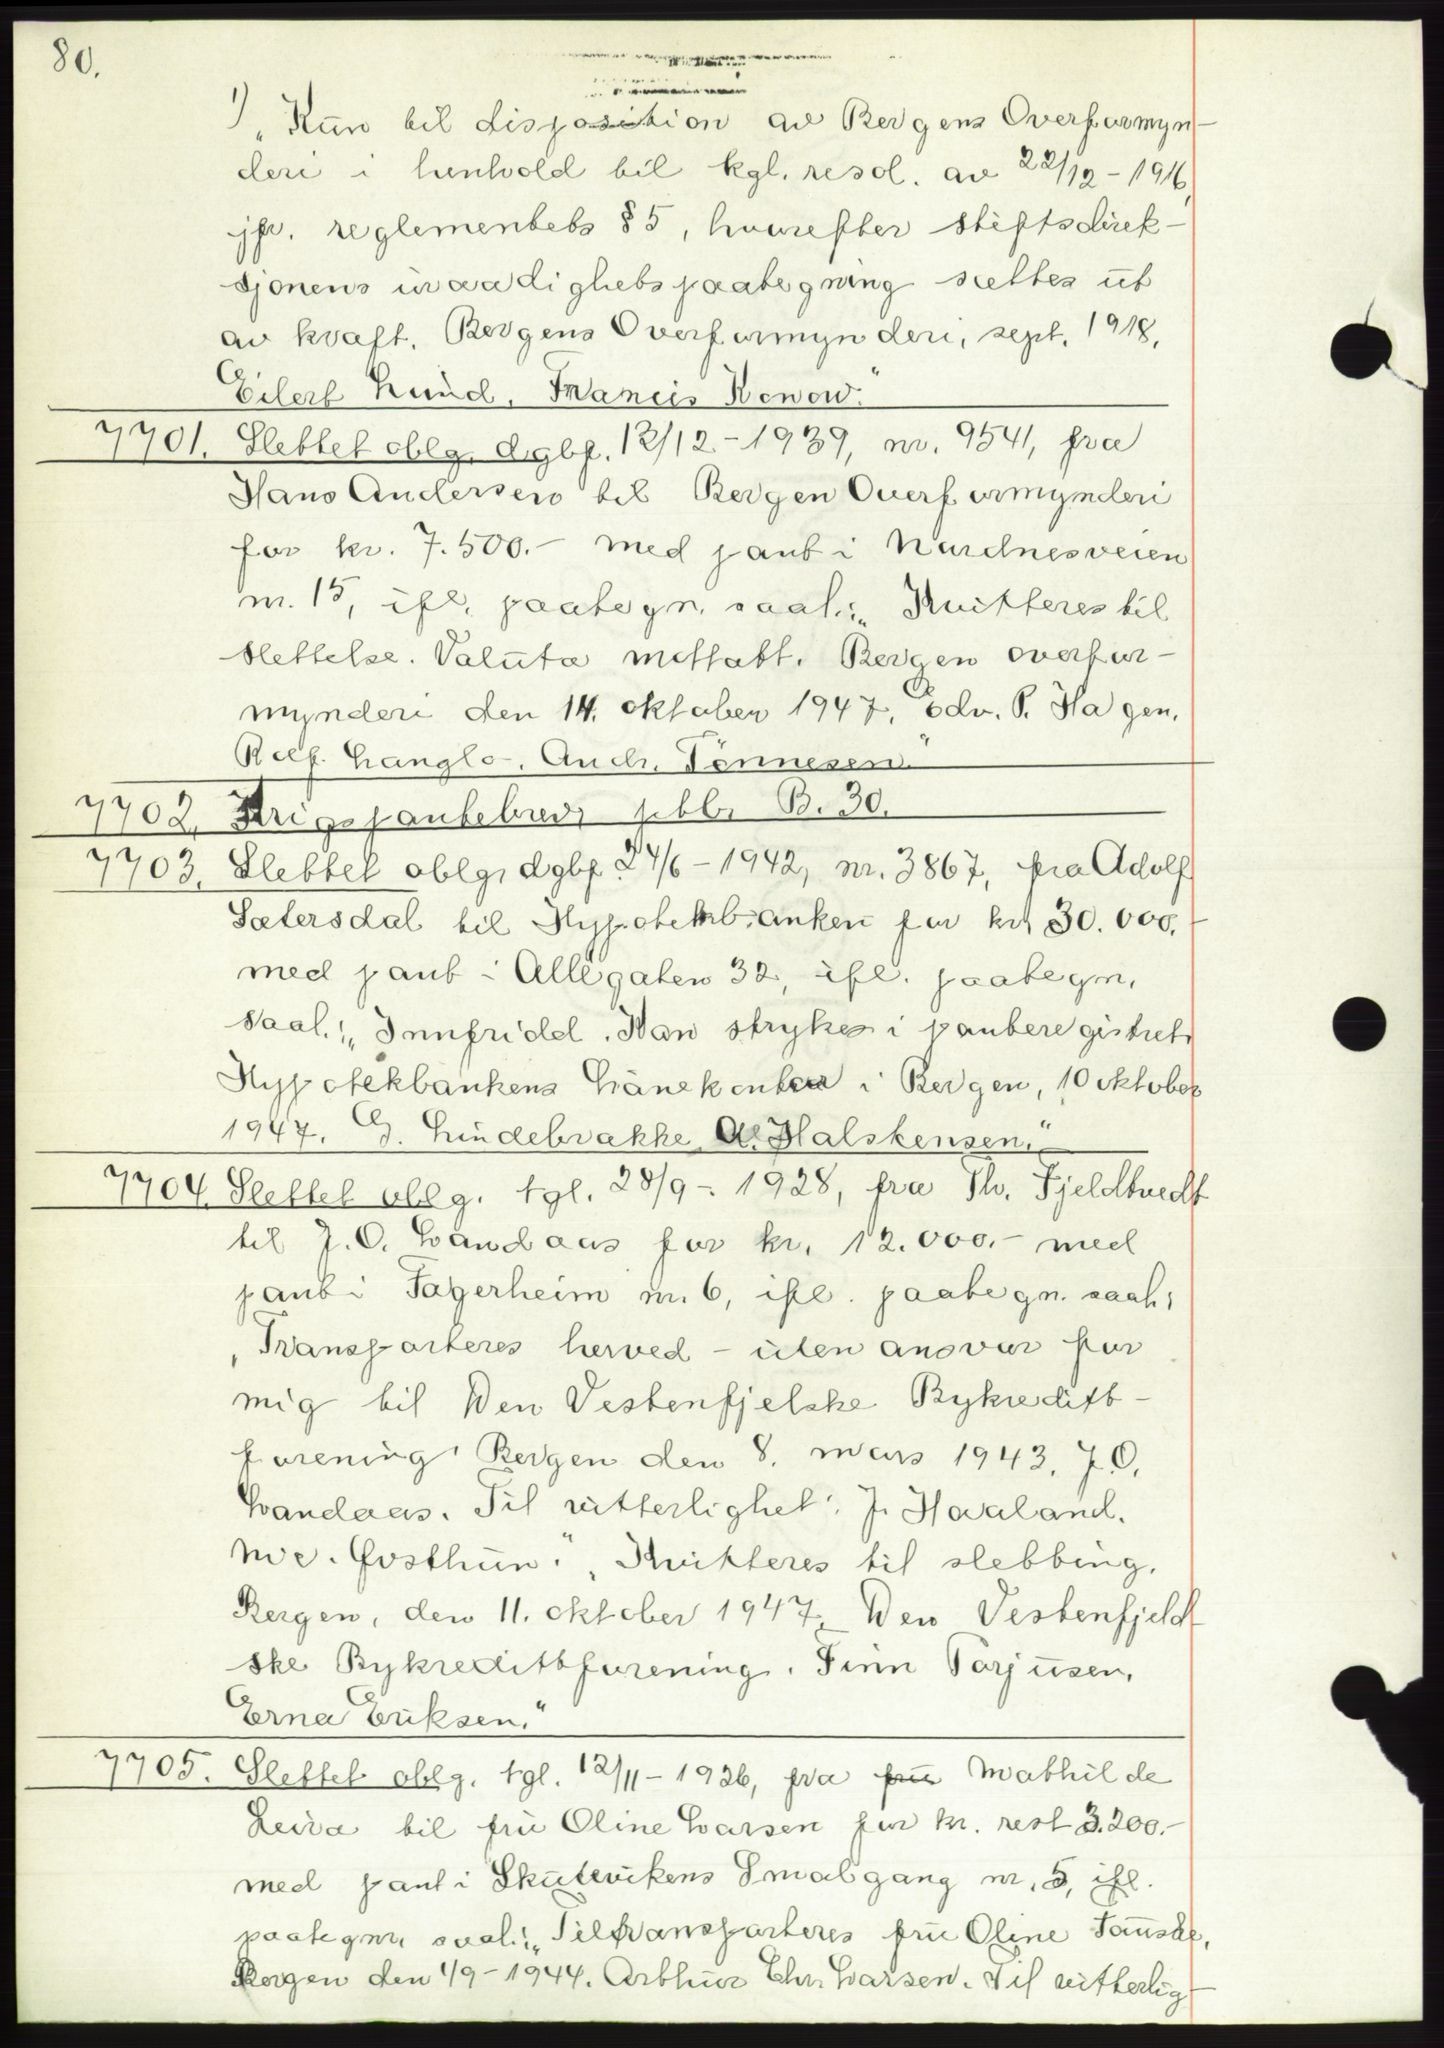 80.
1) „Kun til disposition av Bergens Overformyn-
deri i henhold til kgl. resol. av 22/12-1916,
jfr. reglementets §5, hvorefter stiftsdirek-
sjonens uraadighetspaategning sættes ut
av kraft. Bergens Overformynderi, sept. 1918.
Eilert Lund. Francis Konow."
7701. Slettet oblg. dgbf. 12/12-1939, nr. 9541, fra
Hans Andersen til Bergen Overformynderi
for kr. 7.500.- med pant i Nordnesveien
nr. 15, ifl. paategn. saal.: „Kvitteres til
slettelse. Valuta mottatt. Bergen overfor-
mynderi den 14. oktober 1947. Edv. P. Hagen.
Rolf Langlo. Andr. Tönnesen."
7702. Krigspantebrev, pbb. B. 30.
7703. Slettet oblg, dgbf. 24/6-1942, nr. 3867, fra Adolf
Sætersdal til Hypotekbanken for kr. 30.000.-
med pant i Allégaten 32, ifl. paategn.
saal.: „Innfridd. Kan strykes i panteregistret.
Hypotekbankens Lånekontor i Bergen, 10 oktober
1947. G. Lindebrække A. Halstensen."
7704. Slettet oblg. tgl. 28/9-1928, fra Th. Fjeldtvedt
til J.O. Landaas for kr. 12.000.- med
pant i Fagerheim nr. 6, ifl. paategn. saal:
„Transporteres herved - uten ansvar for
mig til Den Vestenfjelske Bykreditt-
forening. Bergen den 8. mars 1943. J.O.
Landaas. Til vitterlighet: J. Havaland.
Nic. Gosthun." „Kvitteres til sletting.
Bergen, den 11. oktober 1947. Den Vestenfjeld-
ske Bykredittforening. Finn Torjusen.
Erna Eriksen."
7705. Slettet oblg. tgl. 12/11-1926, fra fru Mathilde
Leira til fru Oline Larsen for kr. rest 3.200.-
med pant i Skutevikens Smalgang nr. 5, ifl.
paategn. saal.: „Tiltransporteres fru Oline Tauske.
Bergen den 1/9-1944. Arthur Chr. Larsen. Til vitterlig-